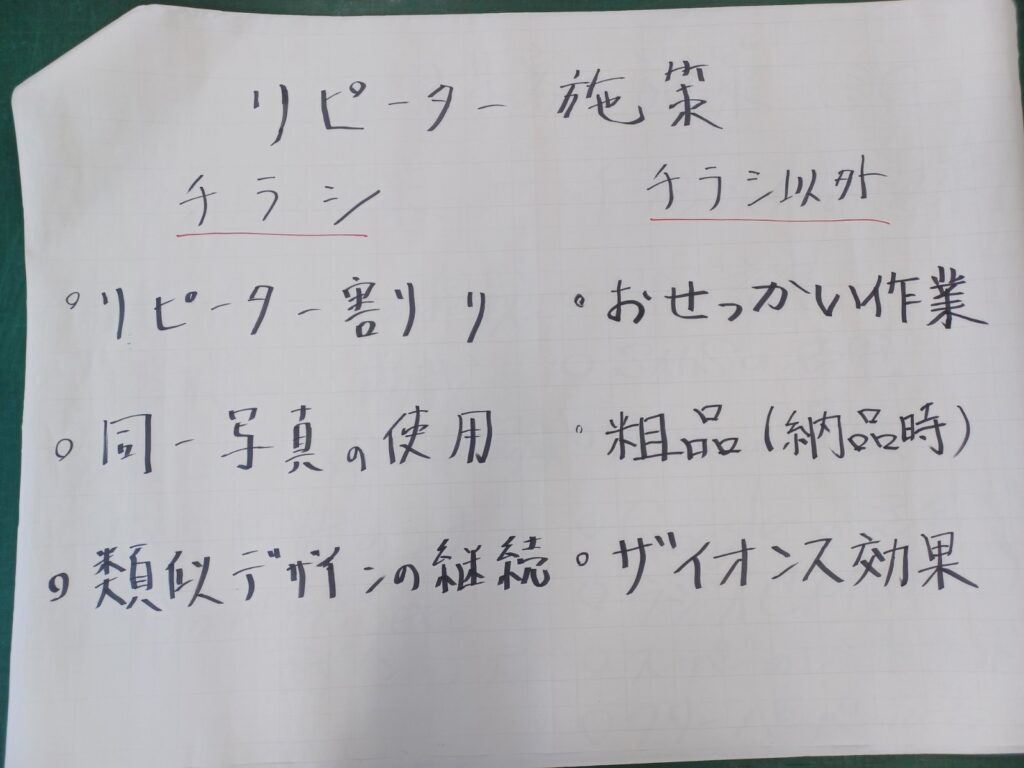 リピーター施策
チラシ
チラシ以外
○リピーター割りり
○おせっかい作業
○同一写真の使用
○粗品(納品時)
○類似デザインの継続
○ザイオンス効果